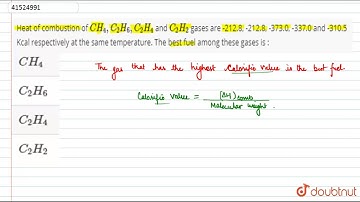 41524991
Heat of combustion of CH₄, C₂H₆, C₂H₄ and C₂H₂ gases are -212.8, -212.8, -373.0, -337.0 and -310.5
Kcal respectively at the same temperature. The best fuel among these gases is :
CH₄
C₂H₆
C₂H₄
C₂H₂
The gas that has the highest Calorific value is the best fuel.
Calorific value = (ΔH)comb / Molecular weight.
doubtnut